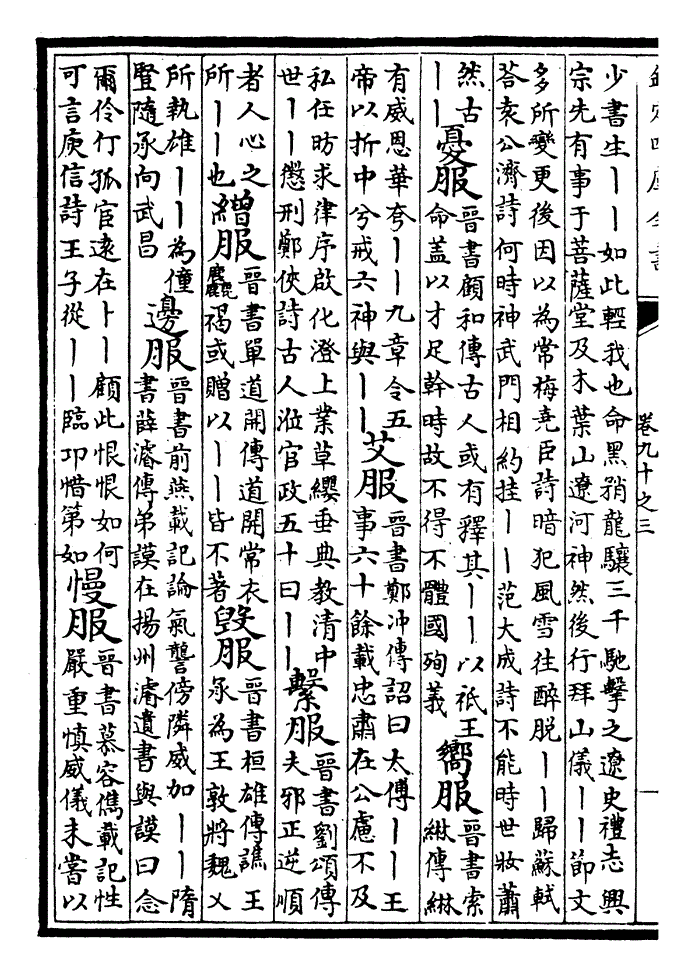 卷九十之三
少書生丨丨如此輕我也命黑矟龍驤三千馳擊之遼史禮志興
宗先有事于菩薩堂及木葉山遼河神然後行拜山儀丨丨節文
多所變更後因以為常梅堯臣詩暗犯風雪往醉脫丨丨歸蘇軾
荅袁公濟詩何時神武門相約挂丨丨范大成詩不能時世妝蕭
然古
丨丨
憂服
晉書顧和傳古人或有釋其丨丨以祇王
命蓋以才足幹時故不得不體國殉義
嚮服
晉書索
綝傳綝
有威恩華夸丨丨九章令五
帝以折中兮戒六神與丨丨
艾服
晉書鄭冲傳詔曰太傅丨丨王
事六十餘載忠肅在公慮不及
私任昉求律序啟化澄上業草纓垂典教清中
世丨丨懲刑鄭俠詩古人涖官政五十曰丨丨
繫服
晉書劉頌傳
夫邪正逆順
者人心之
所丨丨也
繒服
晉書單道開傳道開常衣
麤褐或贈以丨丨皆不著
毀服
晉書桓雄傳譙王
承為王敦將魏乂
所執雄丨丨為僮
豎隨承向武昌
邊服
晉書前燕載記論氣讋傍隣威加丨丨隋
書薛濬傳弟謨在揚州濬遺書與謨曰念
爾伶仃孤官遠在丨丨顧此恨恨如何
可言庾信詩王子從丨丨臨卭惜第如
慢服
晉書慕容儁載記性
嚴重慎威儀未嘗以